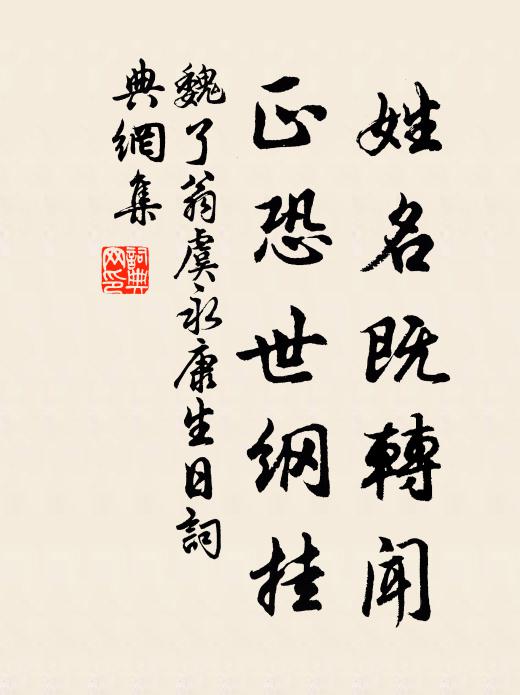 姓名既轉闻
正恐世纲挂
魏了翁虞永康生日詞
典網集
詞典网印